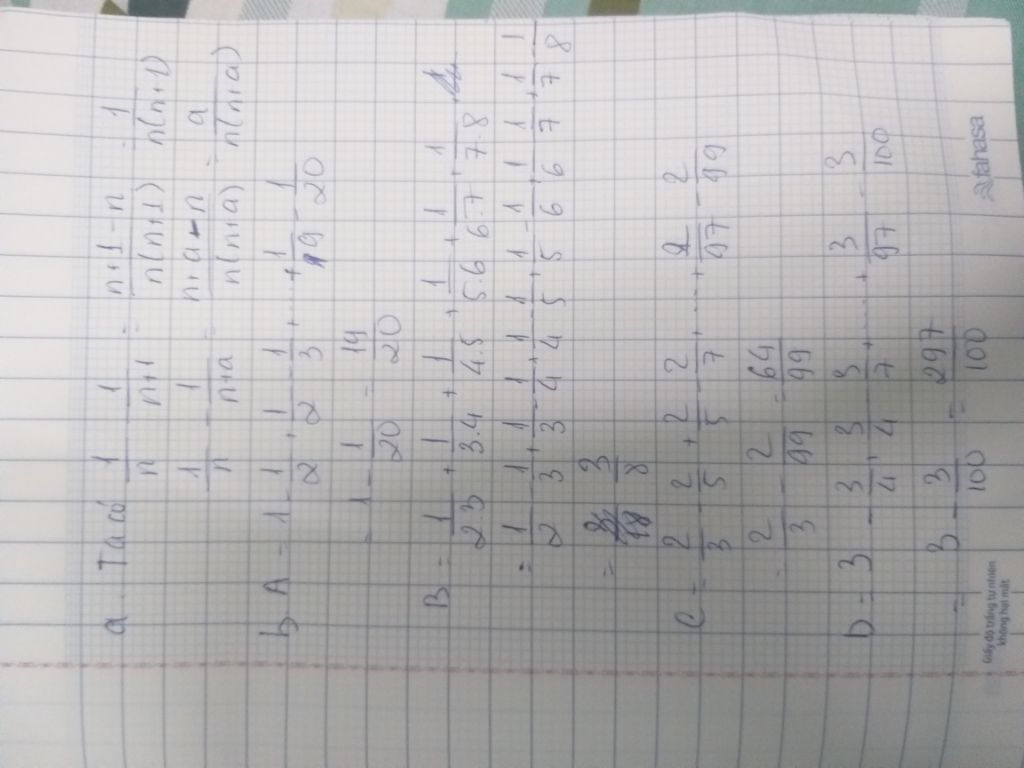 a Ta có 1/n - 1/n+1 = n+1-n/n(n+1) = 1/n(n+1)
1/n - 1/n+a = n+a-n/n(n+a) = a/n(n+a)
b A = 1 - 1/2 + 1/2 - 1/3 + ... + 1/19 - 1/20
= 1 - 1/20 = 19/20
B = 1/2.3 + 1/3.4 + 1/4.5 + 1/5.6 + 1/6.7 + 1/7.8
= 1/2 - 1/3 + 1/3 - 1/4 + 1/4 - 1/5 + 1/5 - 1/6 + 1/6 - 1/7 + 1/7 - 1/8
= 3/8
C = 2/3 - 2/5 + 2/5 - 2/7 + ... + 2/97 - 2/99
= 2/3 - 2/99 = 64/99
D = 3 - 3/4 + 3/4 - 3/7 + ... + 3/97 - 3/100
= 3 - 3/100 = 297/100
Giấy độ trắng tự nhiên
không hại mắt
fahasa